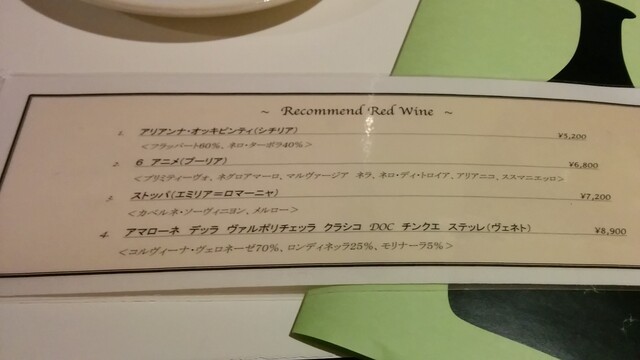 ~ Recommend Red Wine ~
1. アリアンナ・オッキピンティ(シチリア) ¥5,200
<フラッパート60%、ネロ・ターボラ40%>
2. 6 アニメ(プーリア) ¥6,800
<プリミティーヴォ、ネグロアマーロ、マルヴァージア ネラ、ネロ・ディ・トロイア、アリアニコ、ススマニエッロ>
3. ストッパ(エミリア=ロマーニャ) ¥7,200
<カベルネ・ソーヴィニヨン、メルロー>
4. アマローネ デッラ ヴァルポリチェッラ クラシコ DOC チンクエ ステッレ(ヴェネト) ¥8,900
<コルヴィーナ・ヴェロネーゼ70%、ロンディネッラ25%、モリナーラ5%>